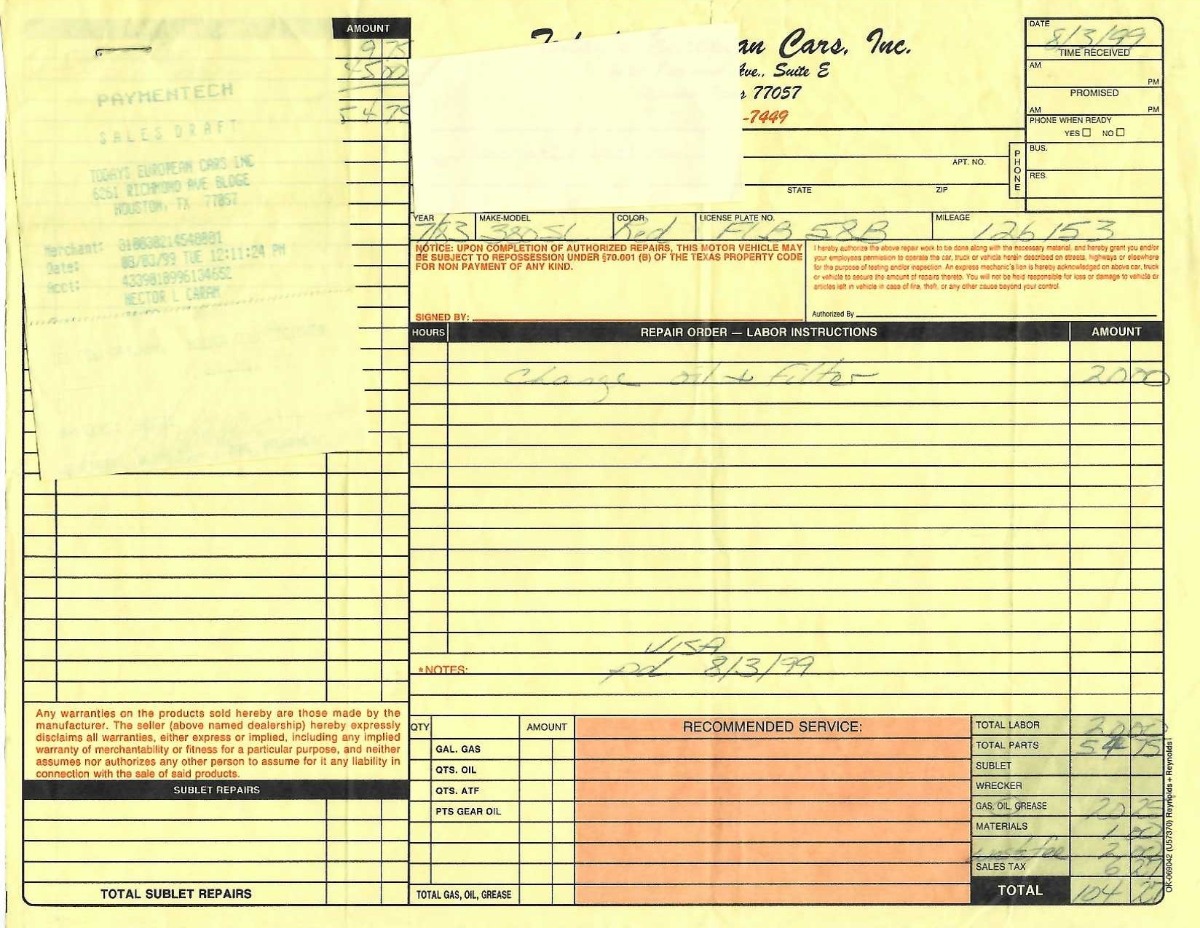 AMOUNT
9 75
45 00
54 75
PAYMENTECH
SALES DRAFT
TODAYS EUROPEAN CARS INC
6261 RICHMOND AVE BLDGE
HOUSTON, TX 77057
Merchant:
Date: 08/03/99 TUE 12:11:24 PM
Acct:
HECTOR L CARAM
an Cars, Inc.
Ave., Suite E
77057
-7449
DATE
8/3/99
TIME RECEIVED
AM
PM
PROMISED
AM PM
PHONE WHEN READY
YES NO
PHONE
BUS.
RES.
APT. NO.
STATE ZIP
YEAR MAKE-MODEL COLOR LICENSE PLATE NO. MILEAGE
380SL Red FLB 58B 126153
NOTICE: UPON COMPLETION OF AUTHORIZED REPAIRS, THIS MOTOR VEHICLE MAY
BE SUBJECT TO REPOSSESSION UNDER §70.001 (B) OF THE TEXAS PROPERTY CODE
FOR NON PAYMENT OF ANY KIND.
SIGNED BY:
I hereby authorize the above repair work to be done along with the necessary material, and hereby grant you and/or
your employees permission to operate the car, truck or vehicle herein described on streets, highways or elsewhere
for the purpose of testing and/or inspection. An express mechanic's lien is hereby acknowledged on above car, truck
or vehicle to secure the amount of repairs thereto. You will not be held responsible for loss or damage to vehicle or
articles left in vehicle in case of fire, theft, or any other cause beyond your control.
Authorized By
HOURS REPAIR ORDER — LABOR INSTRUCTIONS AMOUNT
Change oil + Filter 20 00
VISA
*NOTES: pd 8/3/99
Any warranties on the products sold hereby are those made by the
manufacturer. The seller (above named dealership) hereby expressly
disclaims all warranties, either express or implied, including any implied
warranty of merchantability or fitness for a particular purpose, and neither
assumes nor authorizes any other person to assume for it any liability in
connection with the sale of said products.
SUBLET REPAIRS
TOTAL SUBLET REPAIRS
QTY AMOUNT
GAL. GAS
QTS. OIL
QTS. ATF
PTS GEAR OIL
TOTAL GAS, OIL, GREASE
RECOMMENDED SERVICE:
TOTAL LABOR 20 00
TOTAL PARTS 54 75
SUBLET
WRECKER
GAS, OIL, GREASE 20 25
MATERIALS 1 00
waste fee 2 00
SALES TAX 6 27
TOTAL 104 27
OK-069042 (U57370) Reynolds + Reynolds